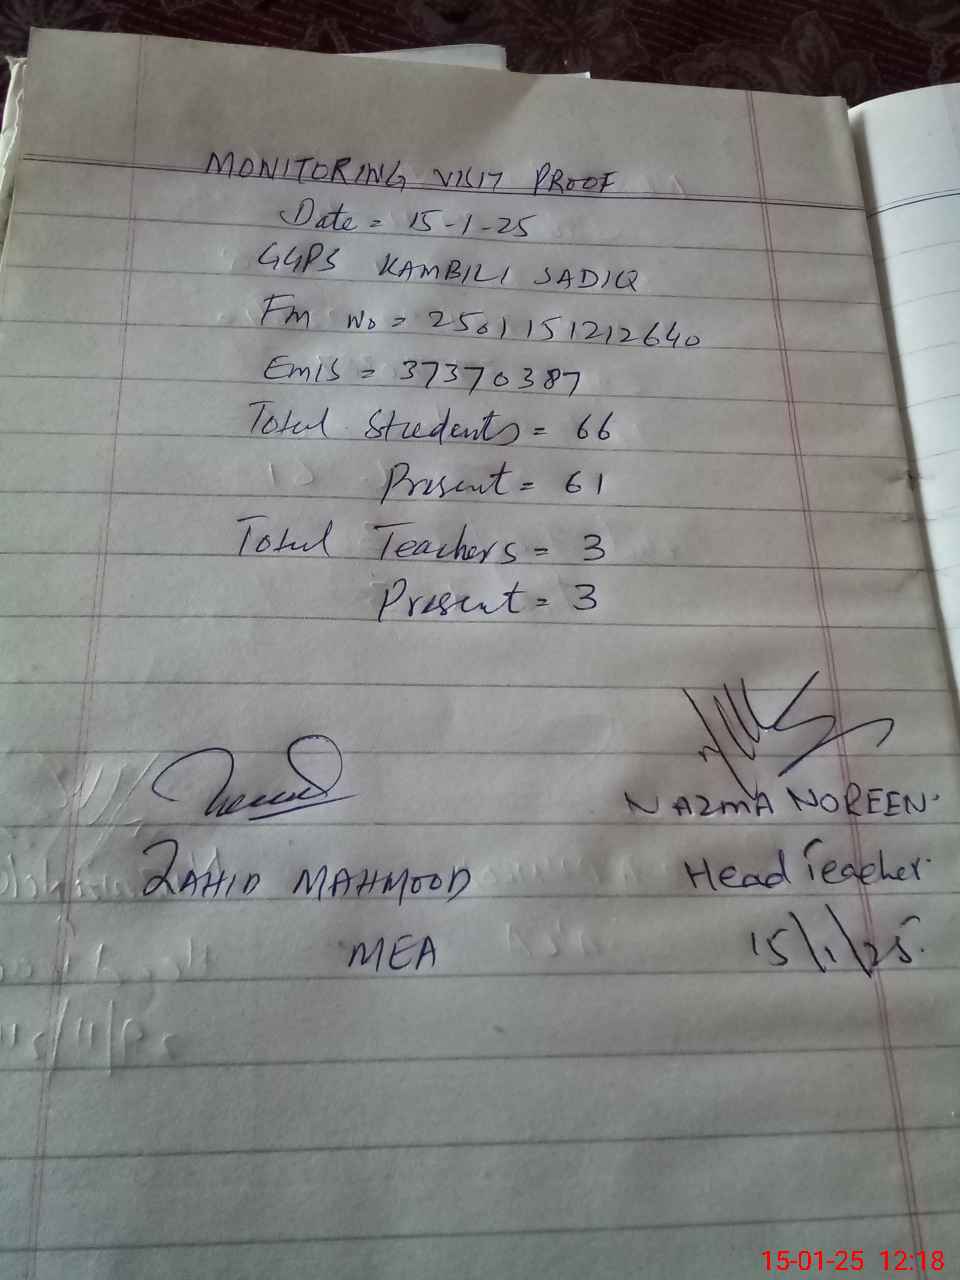 MONITORING VISIT PROOF
Date = 15-1-25
GGPS KAMBILI SADIQ
Fm No = 2501151212640
Emis = 37370387
Total Students = 66
Present = 61
Total Teachers = 3
Present = 3
NAZMA NOREEN
ZAHID MAHMOOD
Head Teacher
MEA
15/1/25
15-01-25 12:18